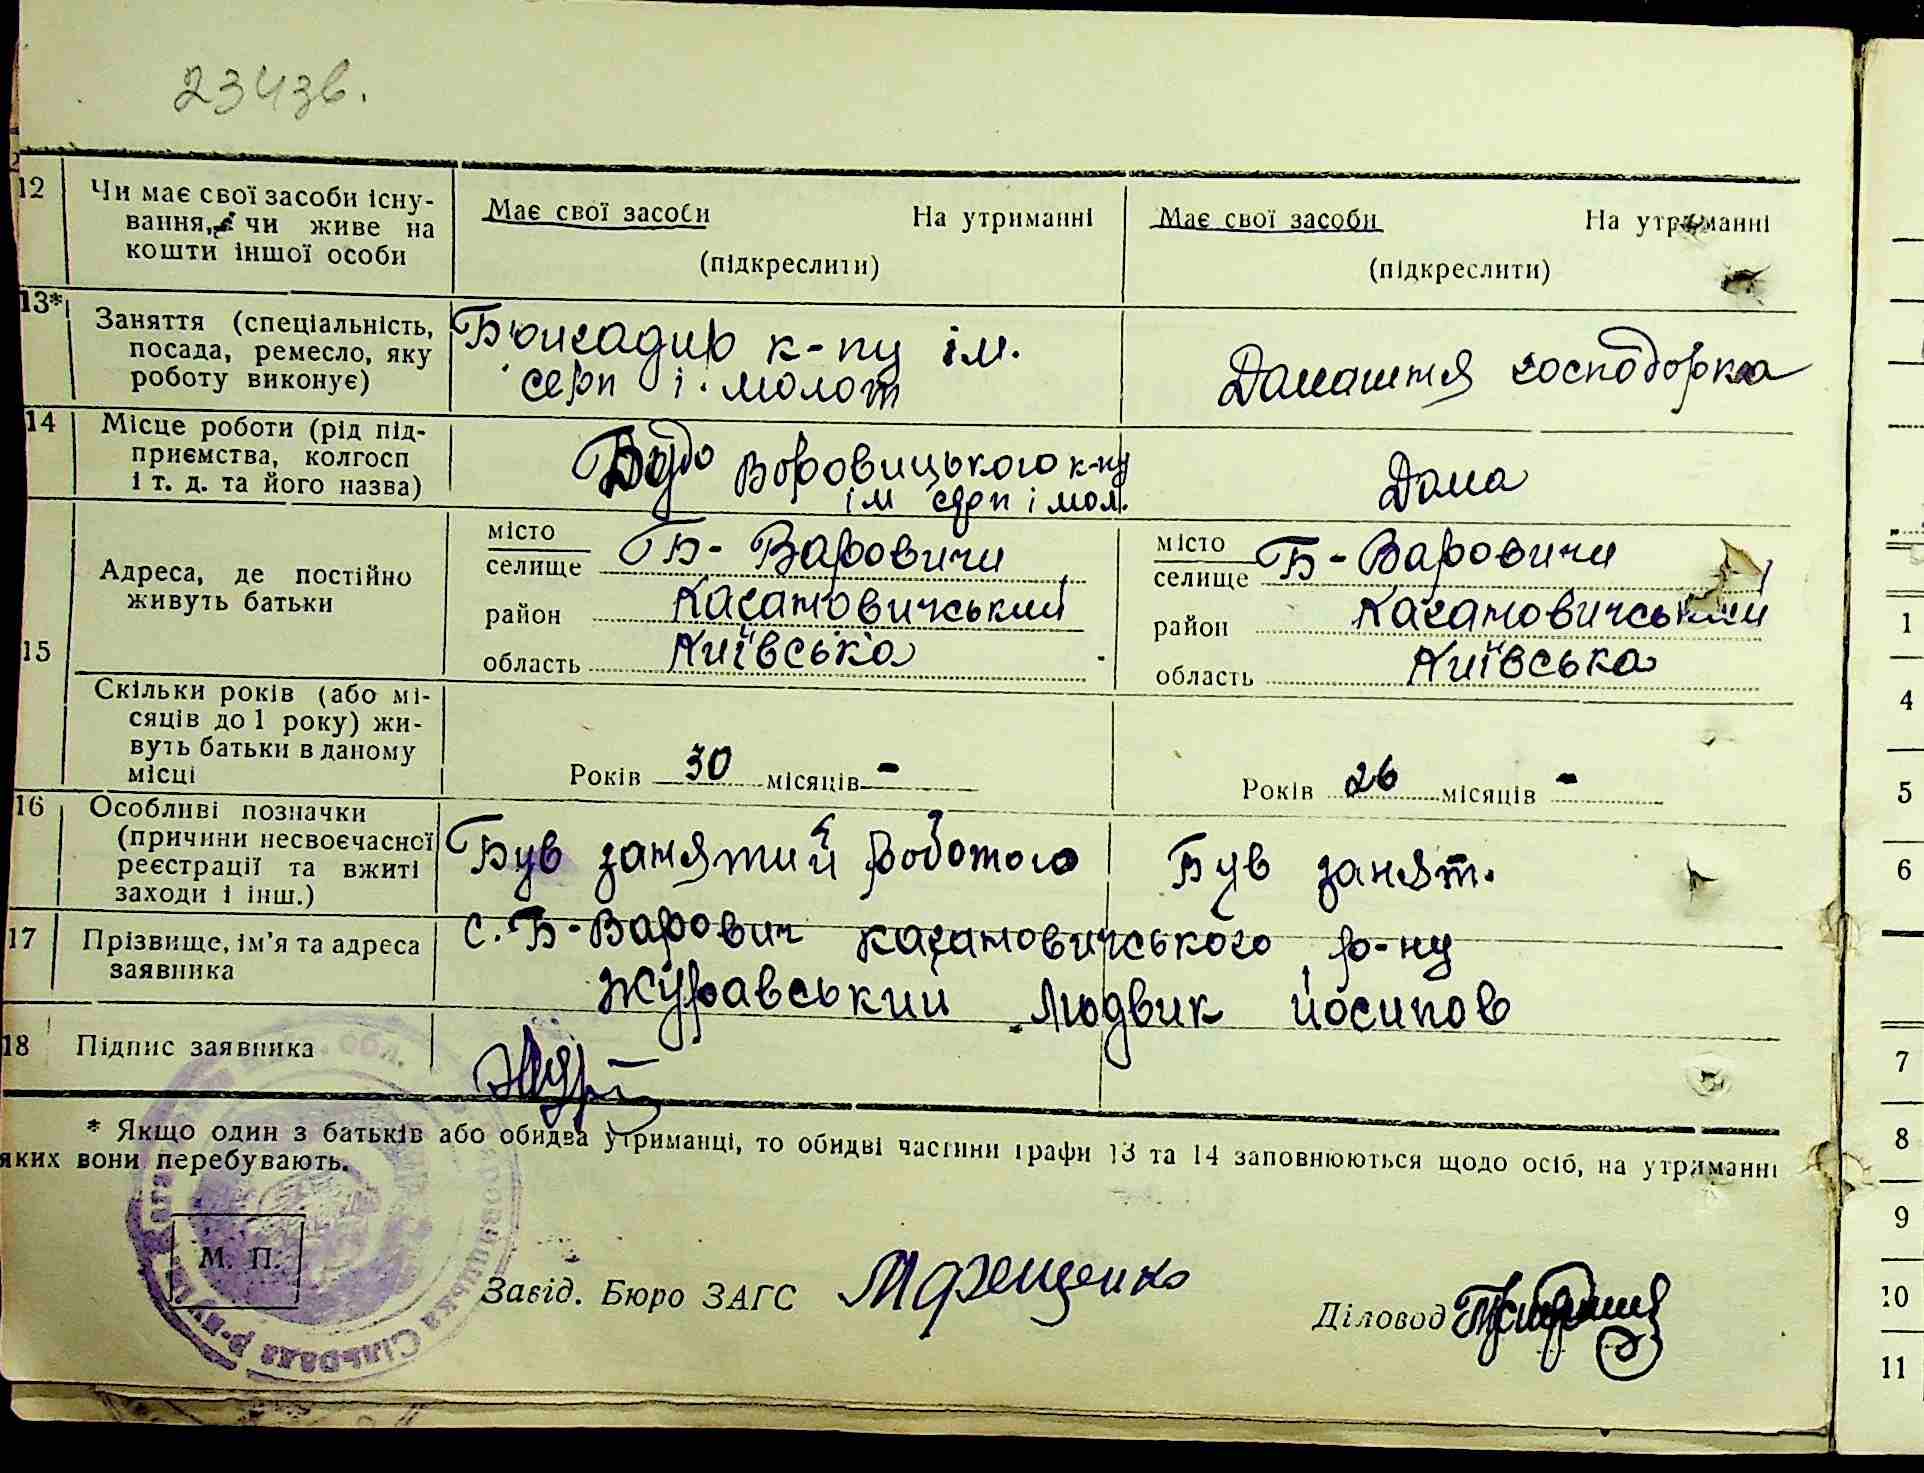 234зв.
12 Чи має свої засоби існу-
вання, чи живе на
кошти іншої особи
Має свої засоби На утриманні
(підкреслити)
Має свої засоби На утриманні
(підкреслити)
13* Заняття (спеціальність,
посада, ремесло, яку
роботу виконує)
Бригадир к-пу ім.
серп і молот
Домашня господорка
14 Місце роботи (рід під-
приємства, колгосп
і т. д. та його назва)
Воровицького к-пу
ім серп і мол.
Дома
15 Адреса, де постійно
живуть батьки
місто
селище Б-Варовичи
район Кагановичський
область Київська
місто
селище Б-Варовичи
район Кагановичський
область Київська
Скільки років (або мі-
сяців до 1 року) жи-
вуть батьки в даному
місці
Років 30 місяців -
Років 26 місяців -
16 Особливі позначки
(причини несвоєчасної
реєстрації та вжиті
заходи і інш.)
Був занятий роботою
Був занят.
17 Прізвище, ім'я та адреса
заявника
с. Б-Варович кагановичського р-ну
Журавський Людвик йосипов
18 Підпис заявника
* Якщо один з батьків або обидва утриманці, то обидві частини графи 13 та 14 заповнюються щодо осіб, на утриманні
яких вони перебувають.
М. П.
Сільрада р-ну
Завід. Бюро ЗАГС
Діловод
1
4
5
6
7
8
9
10
11